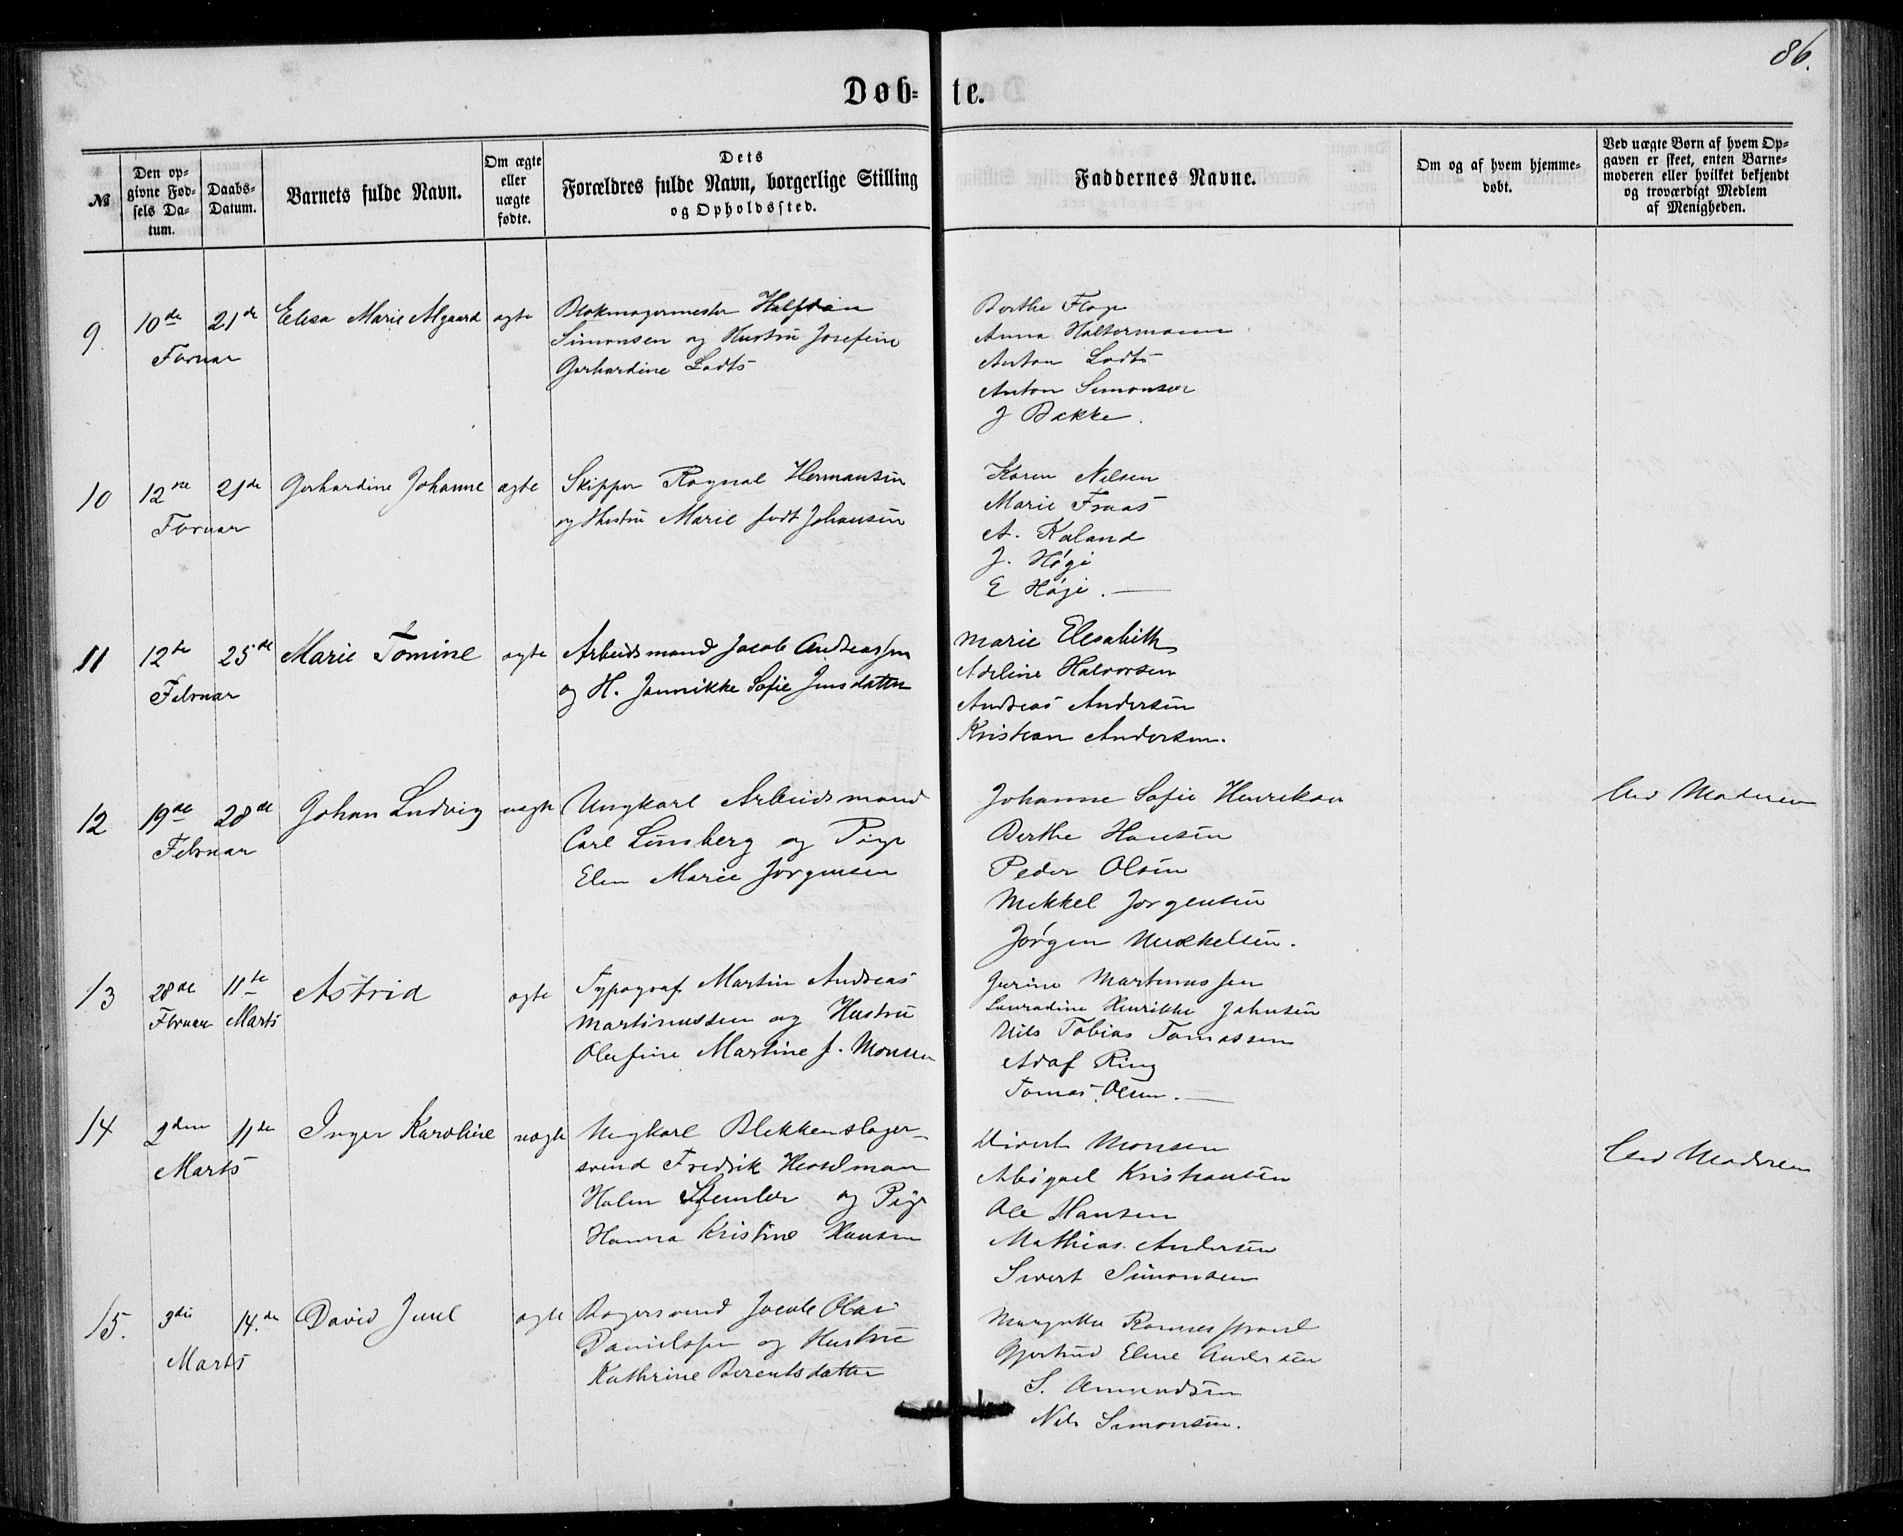 86.
Døb- te.
№
Den op-
givne Fød-
sels Da-
tum.
Daabs-
Datum.
Barnets fulde Navn.
Om ægte
eller
uægte
fødte.
Dets
Forældres fulde Navn, borgerlige Stilling
og Opholdssted.
Faddernes Navne.
Om og af hvem hjemme-
døbt.
Ved uægte Børn af hvem Op-
gaven er skeet, enten Barne-
moderen eller hvilket bekjendt
og troværdigt Medlem
af Menigheden.
9 10de 21de Elisa Marie Algaard ægte
Februar
Blokmagermester Halfdan
Simonsen og Hustru Josefine
Gerhardine Lodts
Berthe Floge
Anna Haltermann
Anton Lodts
Anton Simonsen
J Bakke.
10 12te 21de Gerhardine Johanne ægte
Februar
Skipper Ragnal Hermansen
og Hustru Marie født Johansen
Karen Nilsen
Marie Fraas
A. Kaland
J. Høge
E Høge.
11 12te 25de Marie Tomine ægte
Februar
Arbeidsmand Jacob Andreassen
og H. Jannikke Sofie Jensdatter
Marie Elesabeth
Adeline Halvorsen
Andreas Andersen
Kristian Andersen.
12 19de 28de Johan Ludvig uægte
Februar
Ungkarl Arbeidsmand
Carl Lunsberg og Pige
Elen Marie Jørgensen
Johanne Sofie Henriksen
Berthe Hansen
Peder Olsen
Mekkel Jørgensen
Jørgen Mekkelsen.
Ved Moderen
13 28de 11te Astrid ægte
Februar Marts
Typograf Martin Andreas
Martinussen og Hustru
Olufine Martine f. Monsen
Gurine Martinussen
Lauradine Henrikke Johnsen
Nils Tobias Tomassen
Adof Ring
Tomas Olsen.
14 2den 11te Inger Karoline uægte
Marts
Ungkarl Blekkenslager-
svend Fredrik Hesselman
Holm Stemler og Pige
Hanna Kristine Hansen
Sivert Monsen
Abigael Kristiansen
Ole Hansen
Mathias Andersen
Sivert Simonsen
Ved Moderen
15. 3die 14.de David Juul ægte
Marts
Bagersvend Jacob Olai
Danielssen og Hustru
Kathrine Berentsdatter
Margrethe Rannesstrand
Gjertrud Eline Andersen
S. Amundsen
Nils Simonsen.